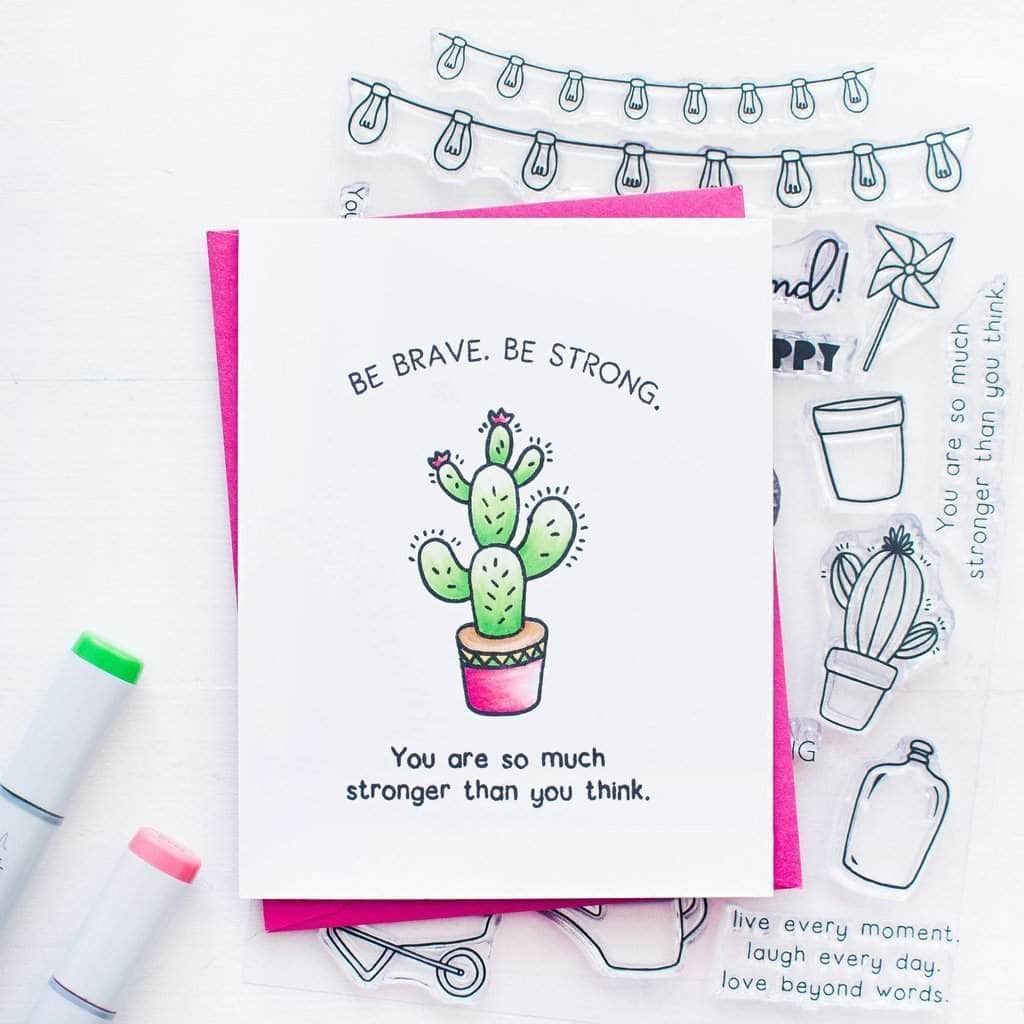 BE BRAVE. BE STRONG.
You are so much
stronger than you think.
nd!
PPY
You are so much
stronger than you think.
live every moment.
laugh every day.
love beyond words.